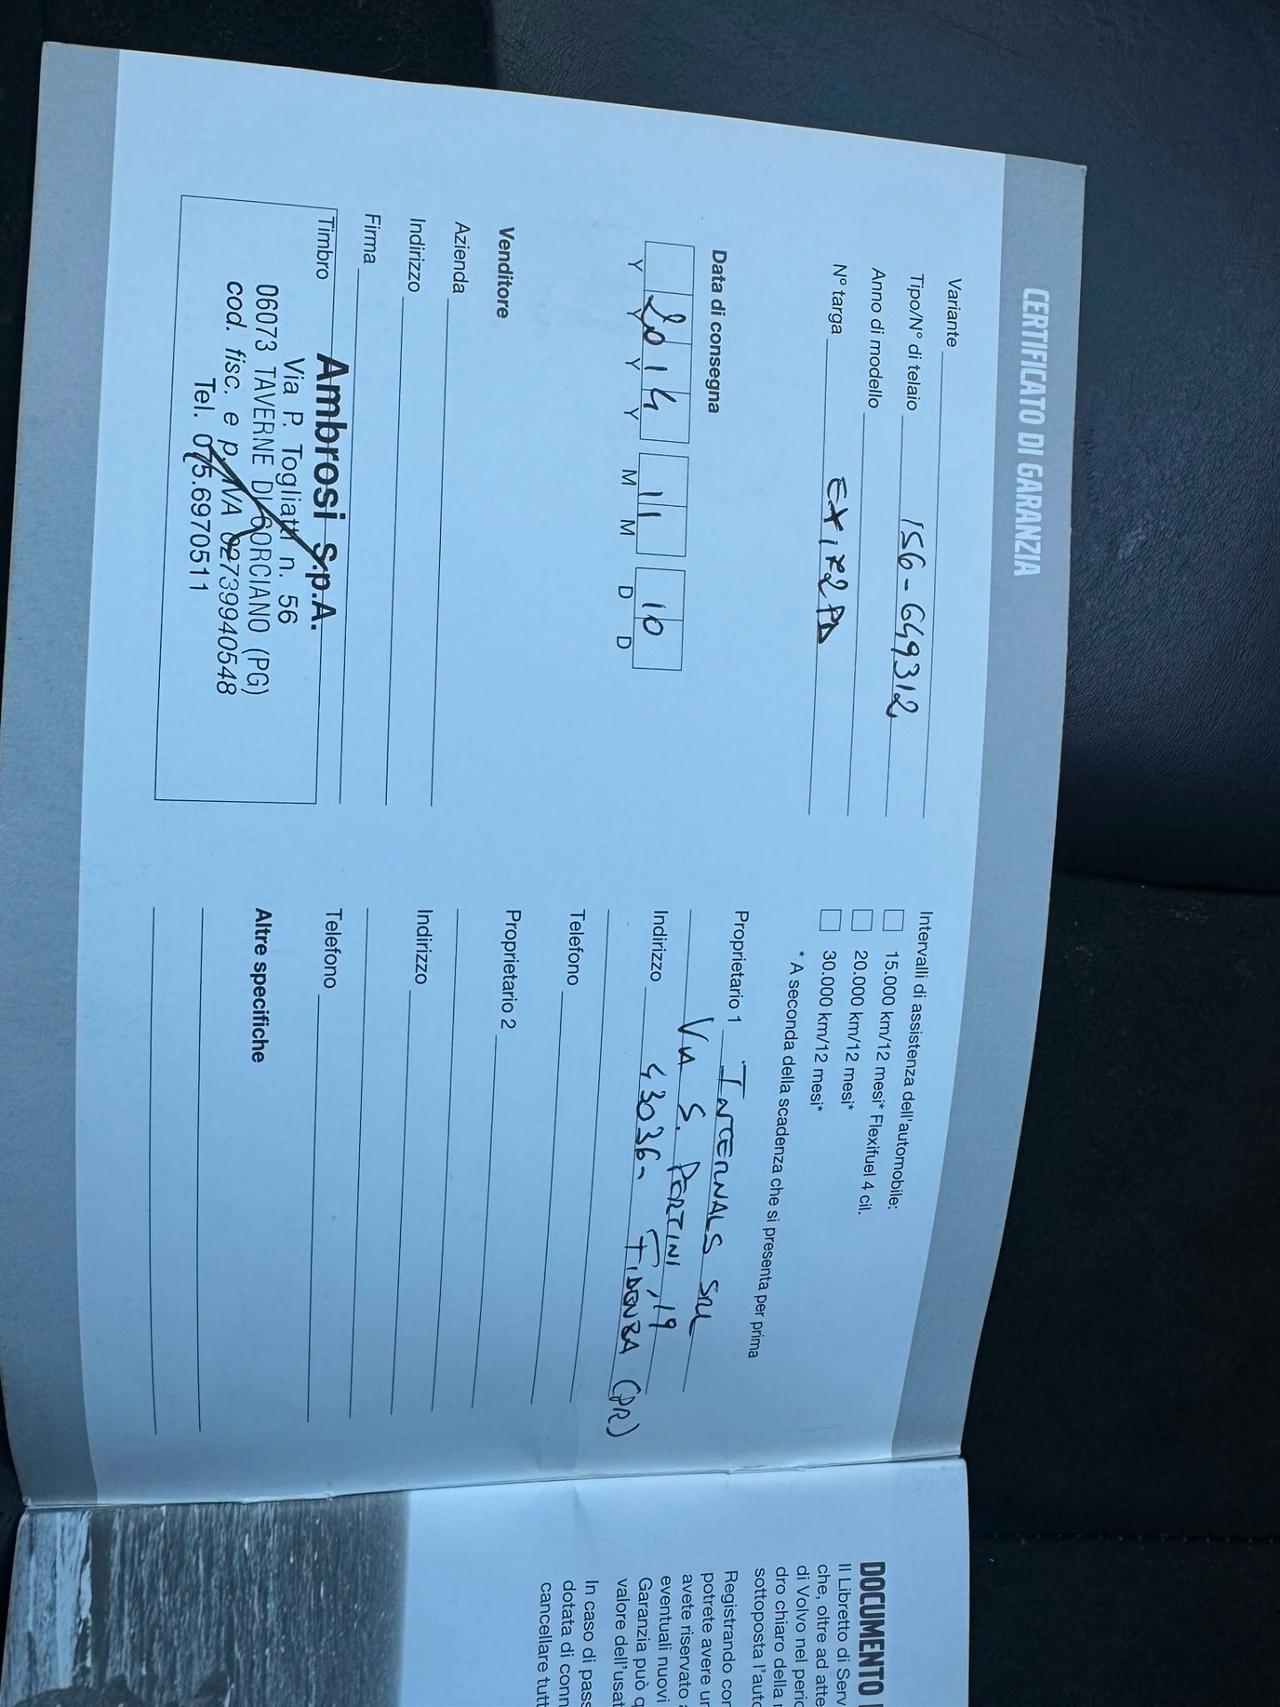 CERTIFICATO DI GARANZIA
Variante
Tipo/N° di telaio 156-649312
Anno di modello
N° targa EX172PD
Data di consegna
2014 11 10
Y Y Y Y M M D D
Venditore
Azienda
Indirizzo
Firma
Timbro
Ambrosi S.p.A.
Via P. Togliatti n. 56
06073 TAVERNE DI CORCIANO (PG)
cod. fisc. e p. IVA 02739940548
Tel. 075.6970511
Intervalli di assistenza dell'automobile:
15.000 km/12 mesi* Flexifuel 4 cil.
20.000 km/12 mesi*
30.000 km/12 mesi*
* A seconda della scadenza che si presenta per prima
Proprietario 1 INTERNALS SRL
VIA S. PERTINI, 19
Indirizzo 43036 - FIDENZA (PR)
Telefono
Proprietario 2
Indirizzo
Telefono
Altre specifiche
DOCUMENTO
Il Libretto di Serv
che, oltre ad atte
di Volvo nel perio
dro chiaro della
sottoposta l'auto
Registrando cor
potrete avere un
avete riservato
eventuali nuovi
Garanzia può
valore dell'usat
In caso di pass
dotata di conn
cancellare tutt